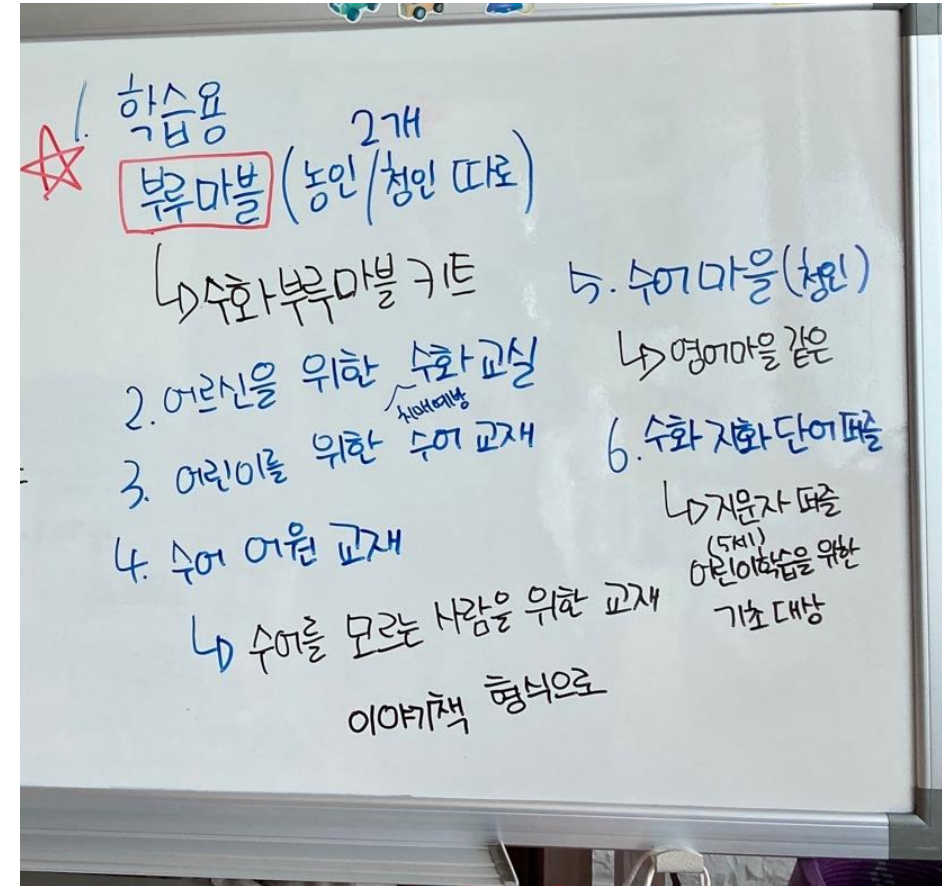 1. 학습용
2개
부루마블 (농인/청인 따로)
↳ 수화부루마블 키트
2. 어르신을 위한 수화교실
치매예방
3. 어린이를 위한 수어 교재
4. 수어 어원 교재
↳ 수어를 모르는 사람을 위한 교재
이야기책 형식으로
5. 수어마을(청인)
↳ 영어마을 같은
6. 수화 지화 단어퍼즐
↳ 지문자 퍼즐
(5세)
어린이학습을 위한
기초 대상